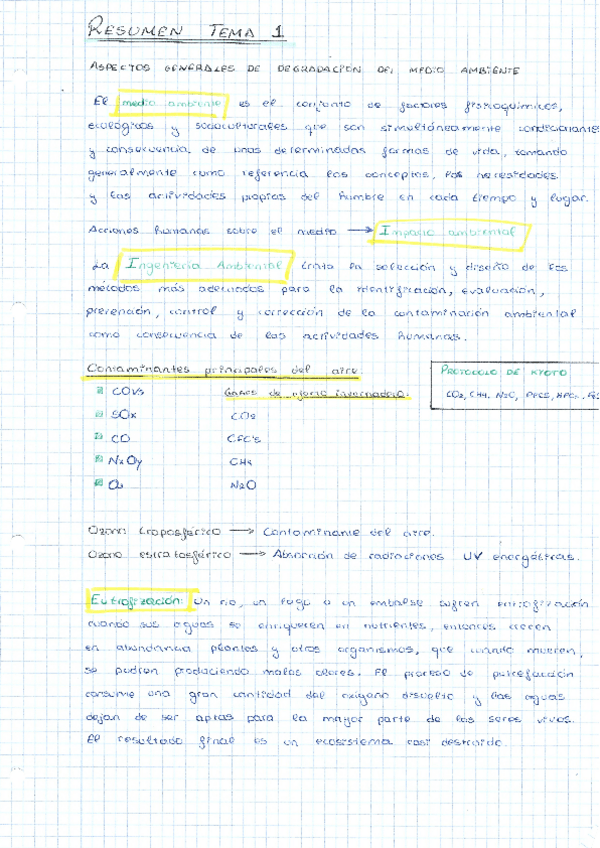 RESUMEN TEMA 1
ASPECTOS GENERALES DE DEGRADACIÓN DEL MEDIO AMBIENTE
El medio ambiente es el conjunto de factores fisicoquímicos,
ecológicos y socioculturales que son simultáneamente condicionantes
y consecuencia de unas determinadas formas de vida, tomando
generalmente como referencia los conceptos, las necesidades
y las actividades propias del hombre en cada tiempo y lugar.
Acciones humanas sobre el medio → Impacto ambiental
La Ingeniería Ambiental trata la selección y diseño de los
métodos más adecuados para la identificación, evaluación,
prevención, control y corrección de la contaminación ambiental
como consecuencia de las actividades humanas.
Contaminantes principales del aire.
COVs
SOx
CO
NxOy
O3
Gases de efecto invernadero.
CO2
CFC's
CH4
N2O
PROTOCOLO DE KYOTO
CO2, CH4, N2O, PFCS, HFCs,
Ozono troposférico → Contaminante del aire.
Ozono estratosférico → Absorción de radiaciones UV energéticas.
Eutrofización: Un río, un lago o un embalse sufren eutrofización
cuando sus aguas se enriquecen en nutrientes, entonces crecen
en abundancia plantas y otros organismos, que cuando mueren,
se pudren produciendo malos olores. El proceso de putrefacción
consume una gran cantidad del oxígeno disuelto y las aguas
dejan de ser aptas para la mayor parte de los seres vivos.
El resultado final es un ecosistema casi destruido.